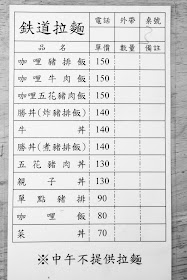 鉄道拉麵 電話 外帶 桌號
品名 單價 數量 備註
咖哩豬排飯 150
咖哩牛肉飯 150
咖哩五花豬肉飯 150
勝丼(炸豬排飯) 140
牛丼 140
勝丼(煮豬排飯) 140
五花豬肉丼 130
親子丼 130
單點豬排 90
咖哩飯 80
菜丼 70
※中午不提供拉麵